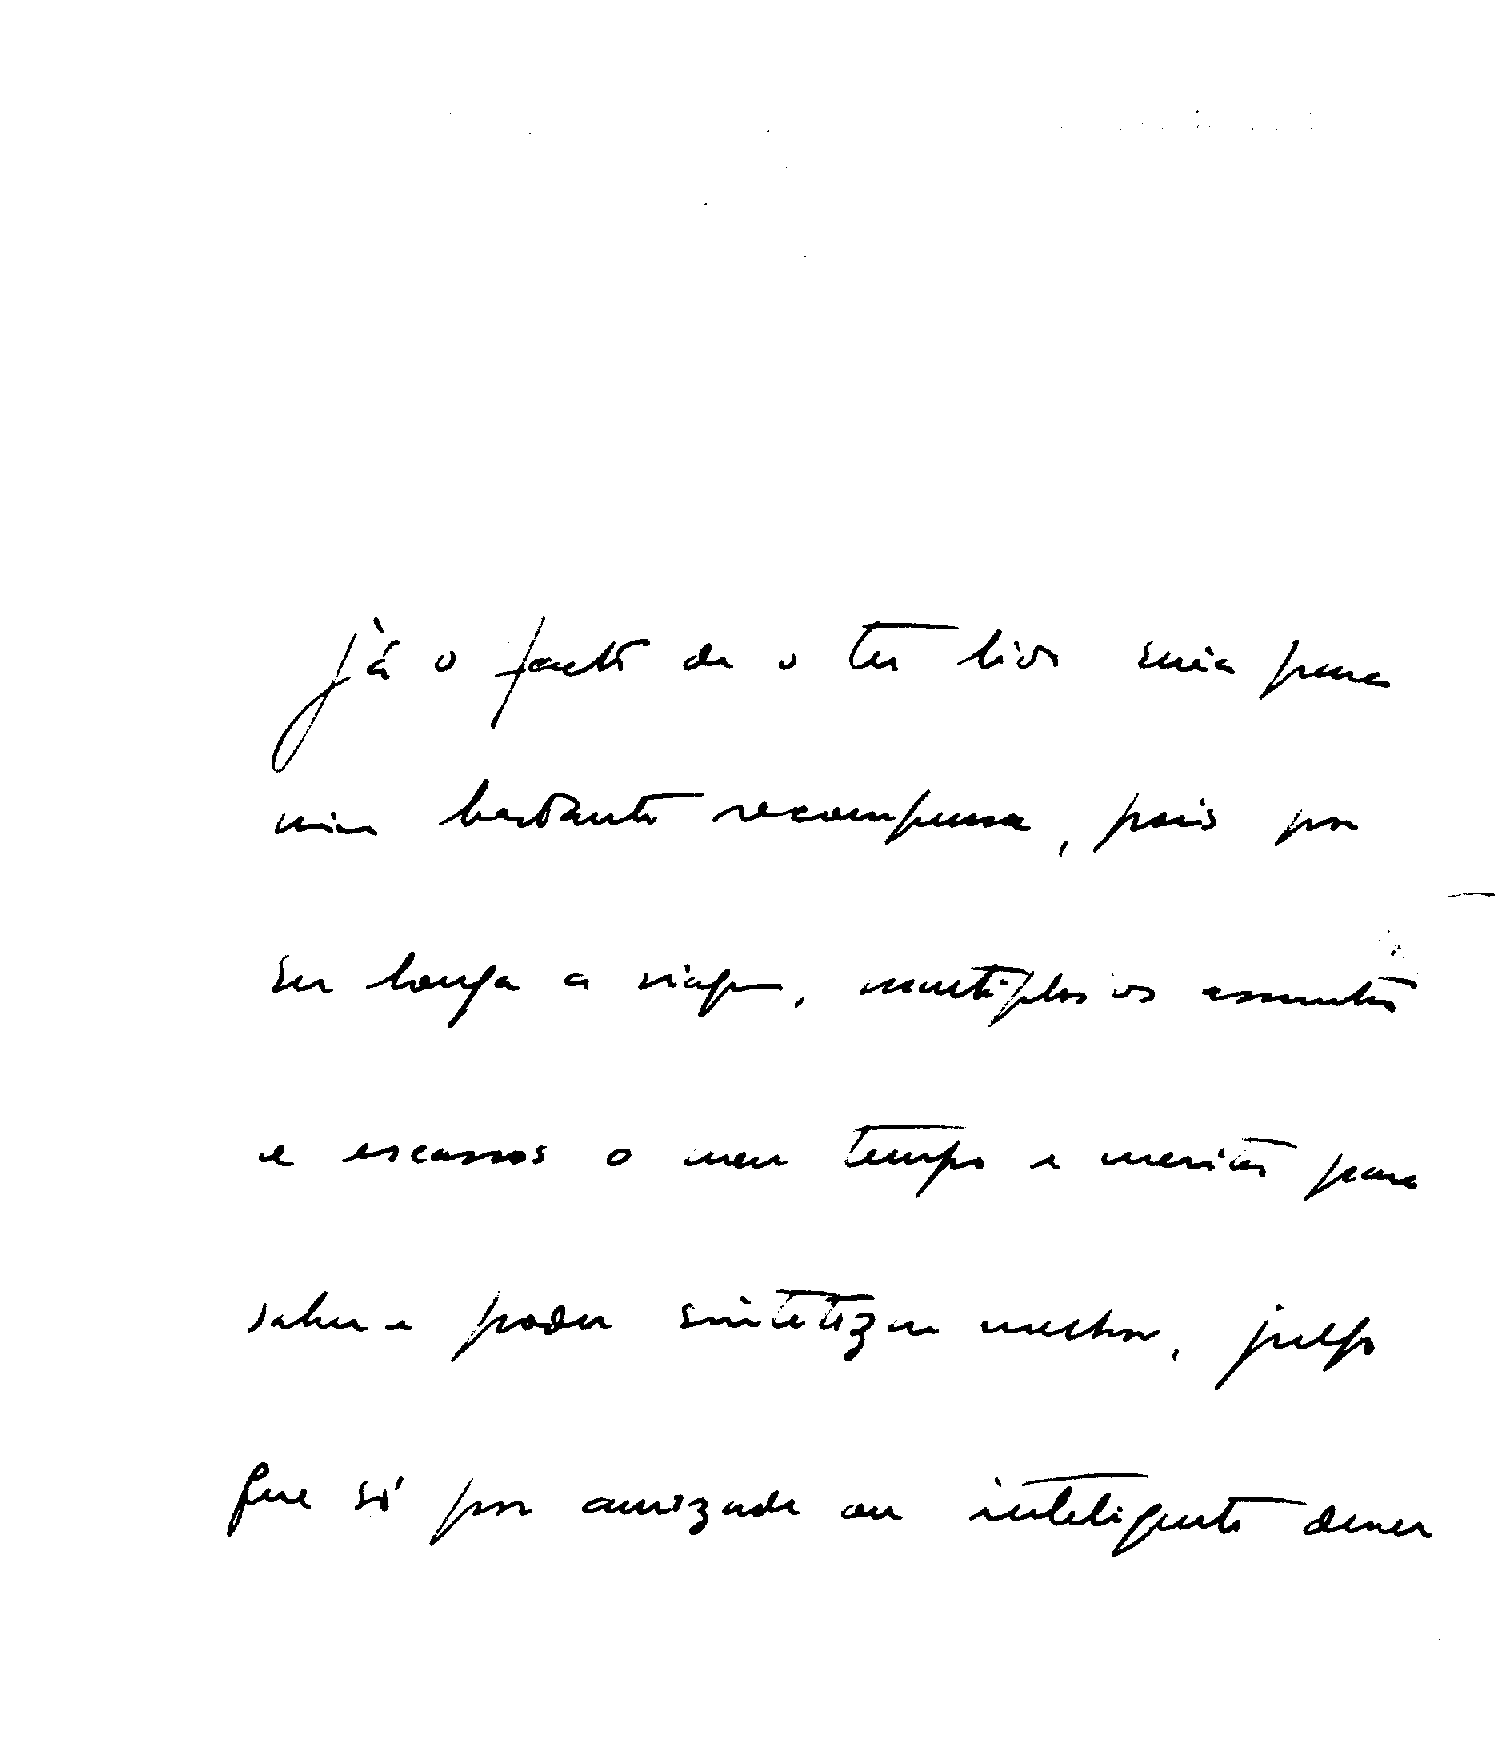 já o facto de o ter lido seria para
mim bastante recompensa, pois por
ser longa a viagem, multiplos os assuntos
e escassos o meu tempo e meritos para
saber e poder sintetizar melhor, julgo
que só por amizade ou inteligente dever